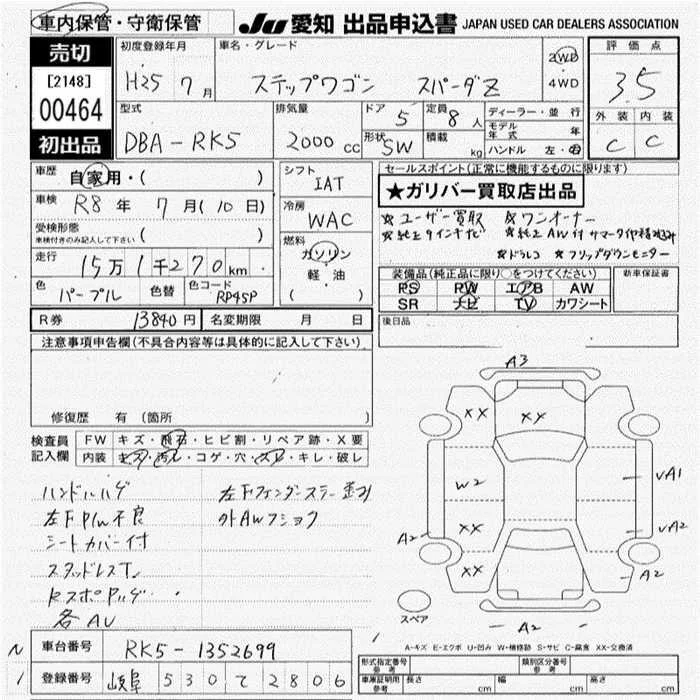 車内保管・守衛保管
JU 愛知 出品申込書 JAPAN USED CAR DEALERS ASSOCIATION
売切
[2148]
00464
初出品
初度登録年月
H25 7月
車名・グレード
ステップワゴン スパーダZ
2WD
4WD
評価点
3.5
外装 内装
C C
型式
DBA-RK5
排気量
2000 CC
ドア 5
定員 8人
形状 SW
積載 kg
ディーラー・並行
モデル年式 年
ハンドル 左・右
車歴
自家用・( )
車検 R8年 7月(10日)
受検形態
車検付きのみ記入して下さい ( )
走行 15万1千270km
色 パープル
色替
色コード RP45P
シフト
IAT
冷房
WAC
燃料
ガソリン
軽・油
( )
セールスポイント(正常に機能するものに限ります)
★ガリバー買取店出品
☆ユーザー買取 ☆ワンオーナー
☆ドラレコ ☆フリップダウンモニター
装備品(純正品に限り○をつけてください)
PS PW エアB AW
SR ナビ TV カワシート
新車保証書
後日品
R券 13840円
名変期限 月 日
注意事項申告欄(不具合内容等は具体的に記入して下さい)
修復歴 有(箇所 )
検査員記入欄
FW キズ・飛石・ヒビ割・リペア跡・X要
内装 キズ・汚れ・コゲ・穴・スレ・キレ・破レ
ハンドルハゲ
左F P/W不良
シートカバー付
スタッドレスT
各AU
外AWフショク
A3
XX XX
W2
XX
XX
A2
A1
A2
A2
A2
スペア
A-キズ E-エクボ U-凹み W-補修跡 S-サビ C-腐食 XX-交換済
N
1
車台番号 RK5-1352699
登録番号 岐阜 530 て 2806
型式指定番号 参考
類別区分番号 参考
車庫証明用 参考
長さ cm
幅 cm
高さ cm